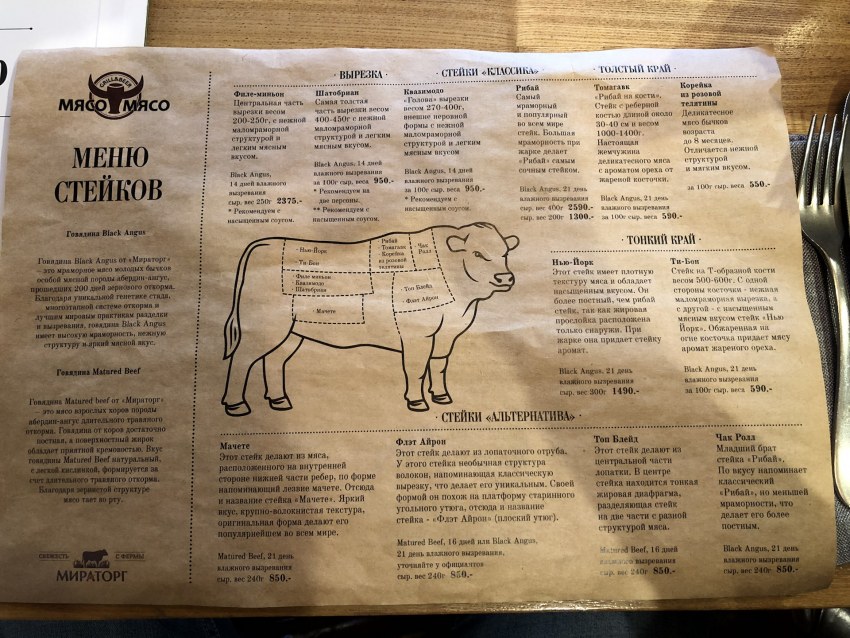 GRILL&BEER
МЯСО МЯСО
МЕНЮ
СТЕЙКОВ
Говядина Black Angus
Говядина Black Angus от «Мираторг»
– это мраморное мясо молодых бычков
особой мясной породы абердин-ангус,
прошедших 200 дней зернового откорма.
Благодаря уникальной генетике стада,
многоэтапной системе откорма и
лучшим мировым практикам разделки
и вызревания, говядина Black Angus
имеет высокую мраморность, нежную
структуру и яркий мясной вкус.
Говядина Matured Beef
Говядина Matured beef от «Мираторг»
– это мясо взрослых коров породы
абердин-ангус длительного травяного
откорма. Говядина от коров достаточно
постная, а поверхностный жирок
обладает приятной кремовостью. Вкус
говядины Matured Beef натуральный,
с легкой кислинкой, формируется за
счет длительного травяного откорма.
Благодаря зернистой структуре
мясо тает во рту.
СВЕЖЕСТЬ С ФЕРМЫ
МИРАТОРГ
· СТЕЙКИ «КЛАССИКА» ·
· ВЫРЕЗКА ·
Филе-миньон
Центральная часть
вырезки весом
200-250г, с нежной
маломраморной
структурой и
легким мясным
вкусом.
Black Angus,
14 дней влажного
вызревания
сыр. вес 250г 2375.-
* Рекомендуем с
насыщенным соусом.
Шатобриан
Самая толстая
часть вырезки весом
400-450г с нежной
маломраморной
структурой и легким
мясным вкусом.
Black Angus, 14 дней
влажного вызревания
за 100г сыр. веса 950.-
* Рекомендуем на
две персоны.
** Рекомендуем с
насыщенным соусом.
Квазимодо
«Голова» вырезки
весом 270-400г,
внешне неровной
формы с нежной
маломраморной
структурой и легким
мясным вкусом
Black Angus, 14 дней
влажного вызревания
за 100г сыр. веса 950.-
* Рекомендуем с
насыщенным соусом.
· ТОЛСТЫЙ КРАЙ ·
Рибай
Самый
мраморный
и популярный
во всем мире
стейк. Большая
мраморность при
жарке делает
«Рибай» самым
сочным стейком.
Black Angus, 21 день
влажного вызревания
сыр. вес 400г 2590.-
сыр. вес 200г 1300.-
Томагавк
«Рибай на кости».
Стейк с реберной
костью длиной около
30-40 см и весом
1000-1400г.
Настоящая
жемчужина
деликатесного мяса
с ароматом ореха от
жареной косточки.
Black Angus, 21 день
влажного вызревания
за 100г сыр. веса 590.-
Корейка
из розовой
телятины
Деликатесное
мясо бычков
возраста
до 8 месяцев.
Отличается нежной
структурой
и мягким вкусом.
за 100г сыр. веса 550.-
· Нью-Йорк
· Ти-Бон
· Рибай
· Томагавк
· Корейка
из розовой
телятины
· Чак
Ролл
· Филе-миньон
· Квазимодо
· Шатобриан
· Топ Блейд
· Флэт Айрон
· Мачете
· ТОНКИЙ КРАЙ ·
Нью-Йорк
Этот стейк имеет плотную
текстуру мяса и обладает
насыщенным вкусом. Он
более постный, чем рибай
стейк, так как жировая
прослойка расположена
только снаружи. При
жарке она придает стейку
аромат.
Black Angus, 21 день
влажного вызревания
сыр. вес 300г 1490.-
Ти-Бон
Стейк на Т-образной кости
весом 500-600г. С одной
стороны косточки - нежная
маломраморная вырезка, а
с другой - с насыщенным
мясным вкусом стейк «Нью
Йорк». Обжаренная на
огне косточка придаст мясу
аромат жареного ореха.
Black Angus, 21 день
влажного вызревания
за 100г сыр. веса 590.-
· СТЕЙКИ «АЛЬТЕРНАТИВА» ·
Мачете
Этот стейк делают из мяса,
расположенного на внутренней
стороне нижней части ребер, по форме
напоминающей лезвие мачете. Отсюда
и название стейка «Мачете». Яркий
вкус, крупно-волокнистая текстура,
оригинальная форма делают его
популярнейшим во всем мире.
Matured Beef, 21 день
влажного вызревания
сыр. вес 240г 850.-
Флэт Айрон
Этот стейк делают из лопаточного отруба.
У этого стейка необычная структура
волокон, напоминающая классическую
вырезку, что делает его уникальным. Своей
формой он похож на платформу старинного
угольного утюга, отсюда и название
стейка - «Флэт Айрон» (плоский утюг).
Matured Beef, 16 дней или Black Angus,
21 день влажного вызревания,
уточняйте у официантов
сыр. вес 240г 850.-
Топ Блейд
Этот стейк делают из
центральной части
лопатки. В центре
стейка находится тонкая
жировая диафрагма,
разделяющая стейк
на две части с разной
структурой мяса.
Matured Beef, 16 дней
влажного вызревания
сыр. вес 240г 850.-
Чак Ролл
Младший брат
стейка «Рибай».
По вкусу напоминает
классический
«Рибай», но меньшей
мраморности, что
делает его более
постным.
Black Angus, 21 день
влажного вызревания
сыр. вес 240г 850.-